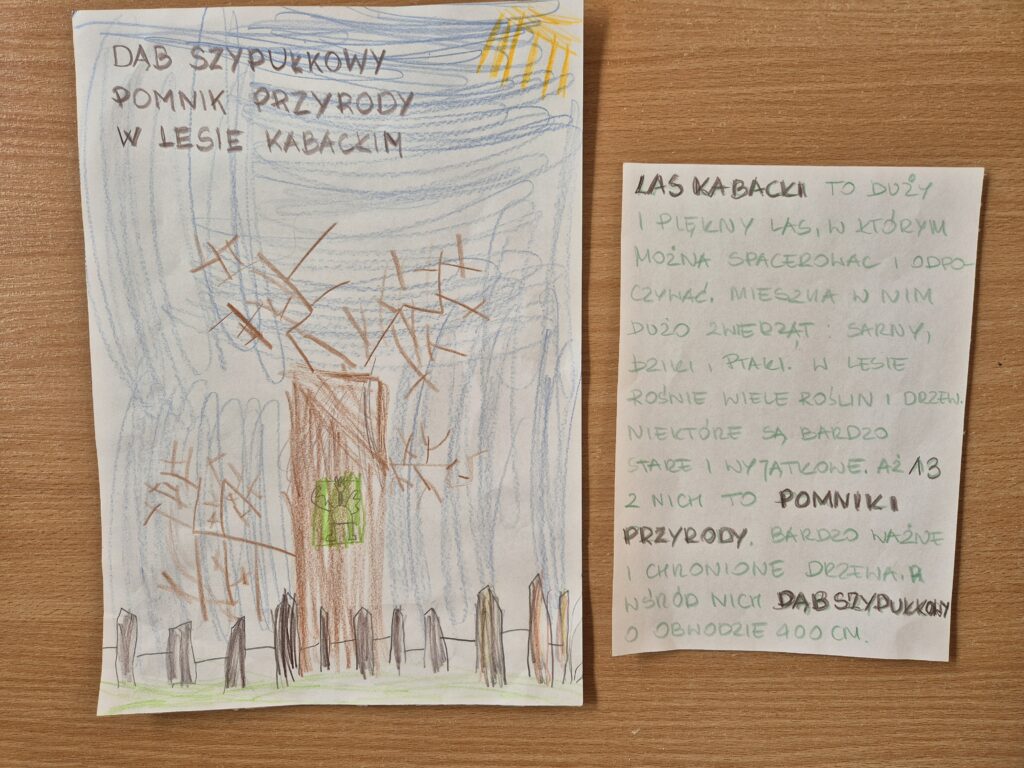 DĄB SZYPUŁKOWY
POMNIK PRZYRODY
W LESIE KABACKIM
LAS KABACKI TO DUŻY
I PIĘKNY LAS, W KTÓRYM
MOŻNA SPACEROWAĆ I ODPO-
CZYWAĆ. MIESZKA W NIM
DUŻO ZWIERZĄT: SARNY,
DZIKI I PTAKI. W LESIE
ROŚNIE WIELE ROŚLIN I DRZEW.
NIEKTÓRE SĄ BARDZO
STARE I WYJĄTKOWE. AŻ 13
Z NICH TO POMNIKI
PRZYRODY. BARDZO WAŻNE
I CHRONIONE DRZEWA. A
WŚRÓD NICH DĄB SZYPUŁKOWY
O OBWODZIE 400 CM.